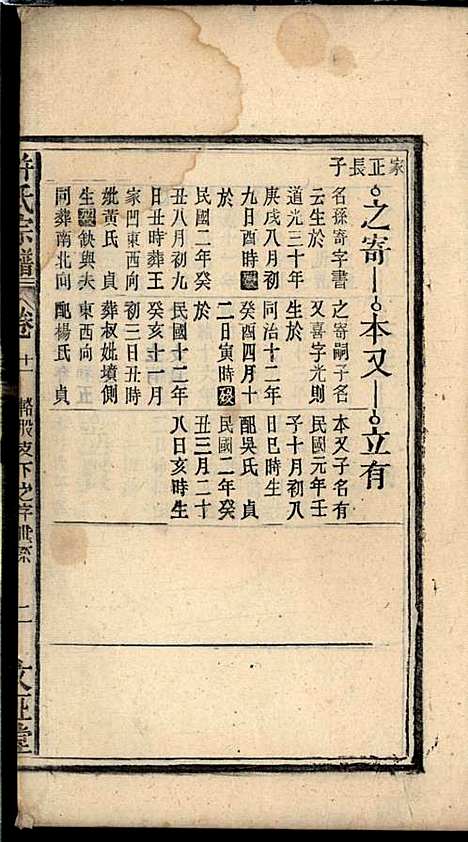 家正長子
之寄本又立有
名孫寄字書
云生於
道光三十年
庚戌八月初
九日酉時歿
於
民國二年癸
丑八月初九
日丑時葬王
家門東西向
妣黃氏 貞
生歿缺與夫
同葬南北向
之寄嗣子名
又喜字光則
生於
同治十二年
癸酉四月十
二日寅時歿
於
民國十二年
癸亥十一月
初三日丑時
葬叔妣墳側
東西向
配楊氏 貞
本又子名有
民國元年壬
子十月初八
日巳時生
配吳氏 貞
民國二年癸
丑三月二十
八日亥時生
許氏宗譜 卷十一 股支下之字世系 文正堂